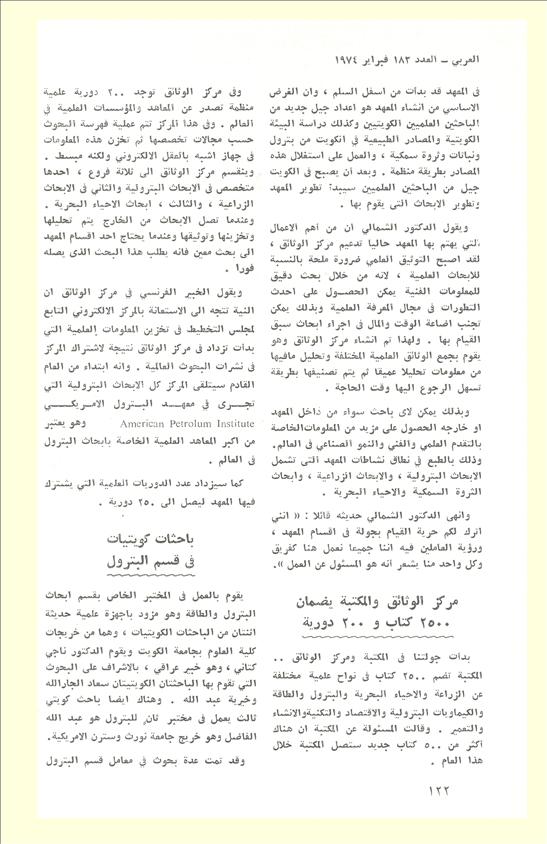 العربي – العدد ١٨٣ فبراير ١٩٧٤
في المعهد قد بدأت من أسفل السلم ، وان الغرض
الاساسي من انشاء المعهد هو اعداد جيل جديد من
الباحثين العلميين الكويتيين وكذلك دراسة البيئة
الكويتية والمصادر الطبيعية في الكويت من بترول
ونباتات وثروة سمكية ، والعمل على استغلال هذه
المصادر بطريقة منظمة . وبعد أن يصبح في الكويت
جيل من الباحثين العلميين سيبدأ تطوير المعهد
وتطوير الابحاث التي يقوم بها .
ويقول الدكتور الشمالي ان من أهم الاعمال
التي يهتم بها المعهد حاليا تدعيم مركز الوثائق ،
لقد اصبح التوثيق العلمي ضرورة ملحة بالنسبة
للابحاث العلمية ، لانه من خلال بحث دقيق
للمعلومات الفنية يمكن الحصول على احدث
التطورات في مجال المعرفة العلمية وبذلك يمكن
تجنب اضاعة الوقت والمال في اجراء ابحاث سبق
القيام بها . ولهذا تم انشاء مركز الوثائق وهو
يقوم بجمع الوثائق العلمية المختلفة وتحليل مافيها
من معلومات تحليلا عميقا ثم يتم تصنيفها بطريقة
تسهل الرجوع اليها وقت الحاجة .
وبذلك يمكن لاى باحث سواء من داخل المعهد
او خارجه الحصول على مزيد من المعلومات الخاصة
بالتقدم العلمي والفني والنمو الصناعي في العالم.
وذلك بالطبع في نطاق نشاطات المعهد التي تشمل
الابحاث البترولية ، والابحاث الزراعية ، وابحاث
الثروة السمكية والاحياء البحرية .
وانهى الدكتور الشمالي حديثه قائلا : « انني
اترك لكم حرية القيام بجولة في اقسام المعهد ،
ورؤية العاملين فيه اننا جميعا نعمل هنا كفريق
وكل واحد منا يشعر انه هو المسئول عن العمل ».
مركز الوثائق والمكتبة يضمان
٢٥٠٠ كتاب و ٢٠٠ دورية
بدأت جولتنا في المكتبة ومركز الوثائق ..
المكتبة تضم ٢٥٠٠ كتاب في نواح علمية مختلفة
عن الزراعة والاحياء البحرية والبترول والطاقة
والكيماويات البترولية والاقتصاد والتكنية والانشاء
والتعمير . وقالت المسئولة عن المكتبة ان هناك
أكثر من ٥٠٠ كتاب جديد ستصل المكتبة خلال
هذا العام .
وفي مركز الوثائق توجد ٢٠٠ دورية علمية
منظمة تصدر عن المعاهد والمؤسسات العلمية في
العالم . وفي هذا المركز تتم عملية فهرسة البحوث
حسب مجالات تخصصها ثم تخزن هذه المعلومات
في جهاز اشبه بالعقل الالكتروني ولكنه مبسط .
وينقسم مركز الوثائق الى ثلاثة فروع ، احدها
متخصص في الابحاث البترولية والثاني في الابحاث
الزراعية ، والثالث ، ابحاث الاحياء البحرية .
وعندما تصل الابحاث من الخارج يتم تحليلها
وتخزينها وتوثيقها وعندما يحتاج احد اقسام المعهد
الى بحث معين فانه يطلب هذا البحث الذى يصله
فورا .
ويقول الخبير الفرنسي في مركز الوثائق ان
النية تتجه الى الاستعانة بالمركز الالكتروني التابع
لمجلس التخطيط في تخزين المعلومات العلمية التي
بدأت تزداد في مركز الوثائق نتيجة لاشتراك المركز
في نشرات البحوث العالمية . وانه ابتداء من العام
القادم سيتلقى المركز كل الابحاث البترولية التي
تجرى في معهد البترول الامريكي
American Petrolum Institute وهو يعتبر
من اكبر المعاهد العلمية الخاصة بابحاث البترول
في العالم .
كما سيزداد عدد الدوريات العلمية التي يشترك
فيها المعهد ليصل الى ٢٥٠ دورية .
باحثات كويتيات
في قسم البترول
يقوم بالعمل في المختبر الخاص بقسم ابحاث
البترول والطاقة وهو مزود باجهزة علمية حديثة
اثنتان من الباحثات الكويتيات ، وهما من خريجات
كلية العلوم بجامعة الكويت ويقوم الدكتور ناجي
كتاني ، وهو خبير عراقي ، بالاشراف على البحوث
التي تقوم بها الباحثتان الكويتيتان سعاد الجارالله
وخيرية عبد الله . وهناك ايضا باحث كويتي
ثالث يعمل في مختبر ثان للبترول هو عبد الله
الفاضل وهو خريج جامعة نورث وسترن الامريكية.
وقد تمت عدة بحوث في معامل قسم البترول
١٢٢